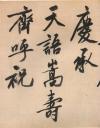 慶承
天語嵩壽
齊呼祝